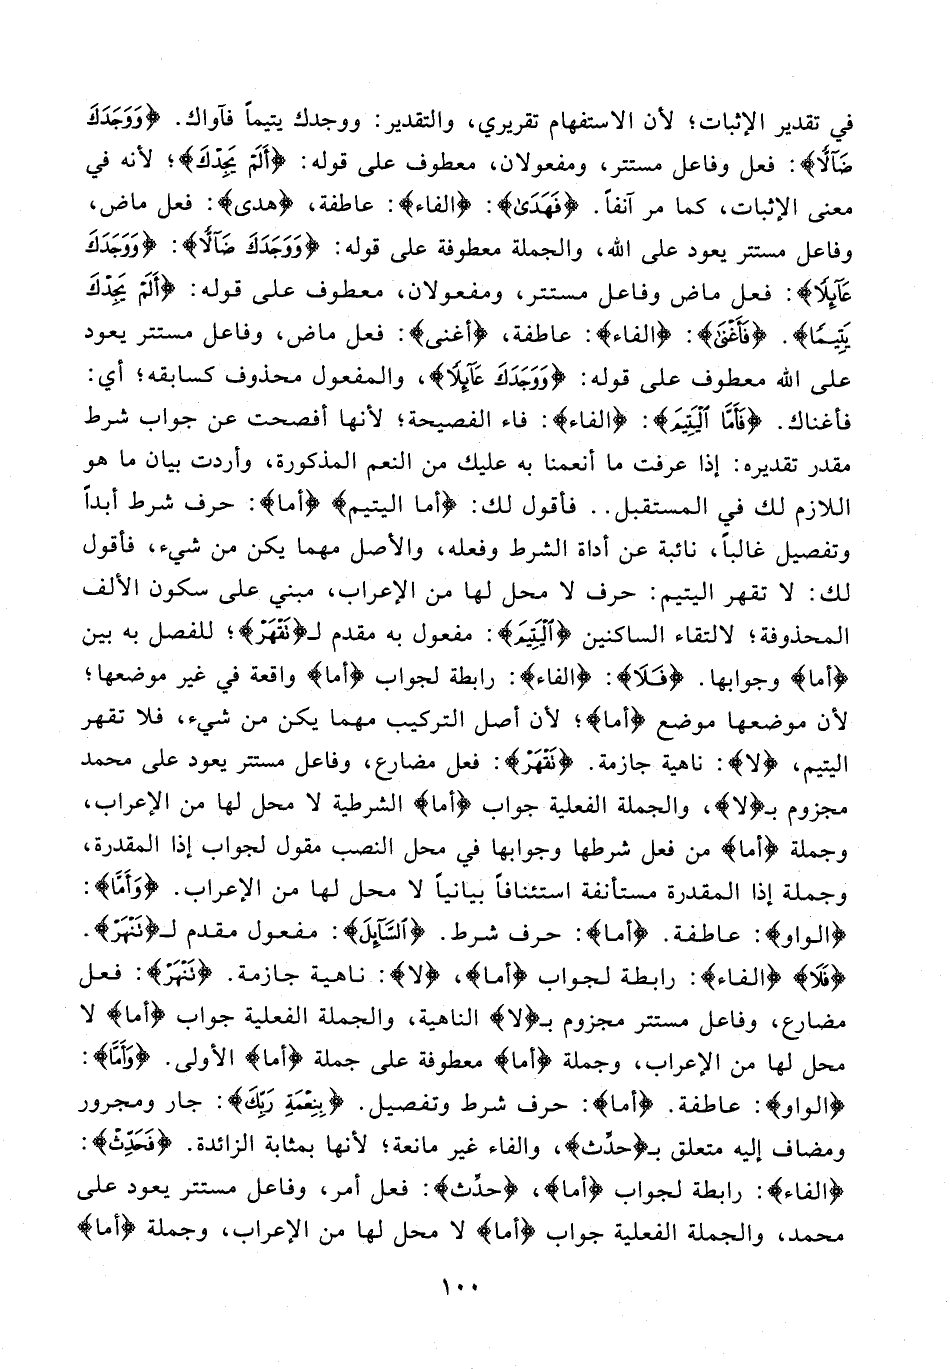 في تقدير الإثبات؛ لأن الاستفهام تقريري، والتقدير: ووجدك يتيماً فآواك. ﴿وَوَجَدَكَ
ضَآلًّا﴾: فعل وفاعل مستتر، ومفعولان، معطوف على قوله: ﴿أَلَمْ يَجِدْكَ﴾؛ لأنه في
معنى الإثبات، كما مر آنفاً. ﴿فَهَدَىٰ﴾: ﴿الفاء﴾: عاطفة، ﴿هدى﴾: فعل ماض،
وفاعل مستتر يعود على الله، والجملة معطوفة على قوله: ﴿وَوَجَدَكَ ضَآلًّا﴾: ﴿وَوَجَدَكَ
عَآئِلًا﴾: فعل ماض وفاعل مستتر، ومفعولان، معطوف على قوله: ﴿أَلَمْ يَجِدْكَ
يَتِيمًا﴾. ﴿فَأَغْنَىٰ﴾: ﴿الفاء﴾: عاطفة، ﴿أغنى﴾: فعل ماض، وفاعل مستتر يعود
على الله معطوف على قوله: ﴿وَوَجَدَكَ عَآئِلًا﴾، والمفعول محذوف كسابقه؛ أي:
فأغناك. ﴿فَأَمَّا ٱلْيَتِيمَ﴾: ﴿الفاء﴾: فاء الفصيحة؛ لأنها أفصحت عن جواب شرط
مقدر تقديره: إذا عرفت ما أنعمنا به عليك من النعم المذكورة، وأردت بيان ما هو
اللازم لك في المستقبل.. فأقول لك: ﴿أما اليتيم﴾ ﴿أما﴾: حرف شرط أبداً
وتفصيل غالباً، نائبة عن أداة الشرط وفعله، والأصل مهما يكن من شيء، فأقول
لك: لا تقهر اليتيم: حرف لا محل لها من الإعراب، مبني على سكون الألف
المحذوفة؛ لالتقاء الساكنين ﴿ٱلْيَتِيمَ﴾: مفعول به مقدم لـ﴿نَقْهَرْ﴾؛ للفصل به بين
﴿أما﴾ وجوابها. ﴿فَلَا﴾: ﴿الفاء﴾: رابطة لجواب ﴿أما﴾ واقعة في غير موضعها؛
لأن موضعها موضع ﴿أما﴾؛ لأن أصل التركيب مهما يكن من شيء، فلا تقهر
اليتيم، ﴿لا﴾: ناهية جازمة. ﴿نَقْهَرْ﴾: فعل مضارع، وفاعل مستتر يعود على محمد
مجزوم بـ﴿لا﴾، والجملة الفعلية جواب ﴿أما﴾ الشرطية لا محل لها من الإعراب،
وجملة ﴿أما﴾ من فعل شرطها وجوابها في محل النصب مقول لجواب إذا المقدرة،
وجملة إذا المقدرة مستأنفة استئنافاً بيانياً لا محل لها من الإعراب. ﴿وَأَمَّا﴾:
﴿الواو﴾: عاطفة. ﴿أما﴾: حرف شرط. ﴿ٱلسَّآئِلَ﴾: مفعول مقدم لـ﴿نَنْهَرْ﴾.
﴿فَلَا﴾ ﴿الفاء﴾: رابطة لجواب ﴿أما﴾، ﴿لا﴾: ناهية جازمة. ﴿نَنْهَرْ﴾: فعل
مضارع، وفاعل مستتر مجزوم بـ﴿لا﴾ الناهية، والجملة الفعلية جواب ﴿أما﴾ لا
محل لها من الإعراب، وجملة ﴿أما﴾ معطوفة على جملة ﴿أما﴾ الأولى. ﴿وَأَمَّا﴾:
﴿الواو﴾: عاطفة. ﴿أما﴾: حرف شرط وتفصيل. ﴿بِنِعْمَةِ رَبِّكَ﴾: جار ومجرور
ومضاف إليه متعلق بـ﴿حدِّث﴾، والفاء غير مانعة؛ لأنها بمثابة الزائدة. ﴿فَحَدِّثْ﴾:
﴿الفاء﴾: رابطة لجواب ﴿أما﴾، ﴿حدِّث﴾: فعل أمر، وفاعل مستتر يعود على
محمد، والجملة الفعلية جواب ﴿أما﴾ لا محل لها من الإعراب، وجملة ﴿أما﴾
١٠٠